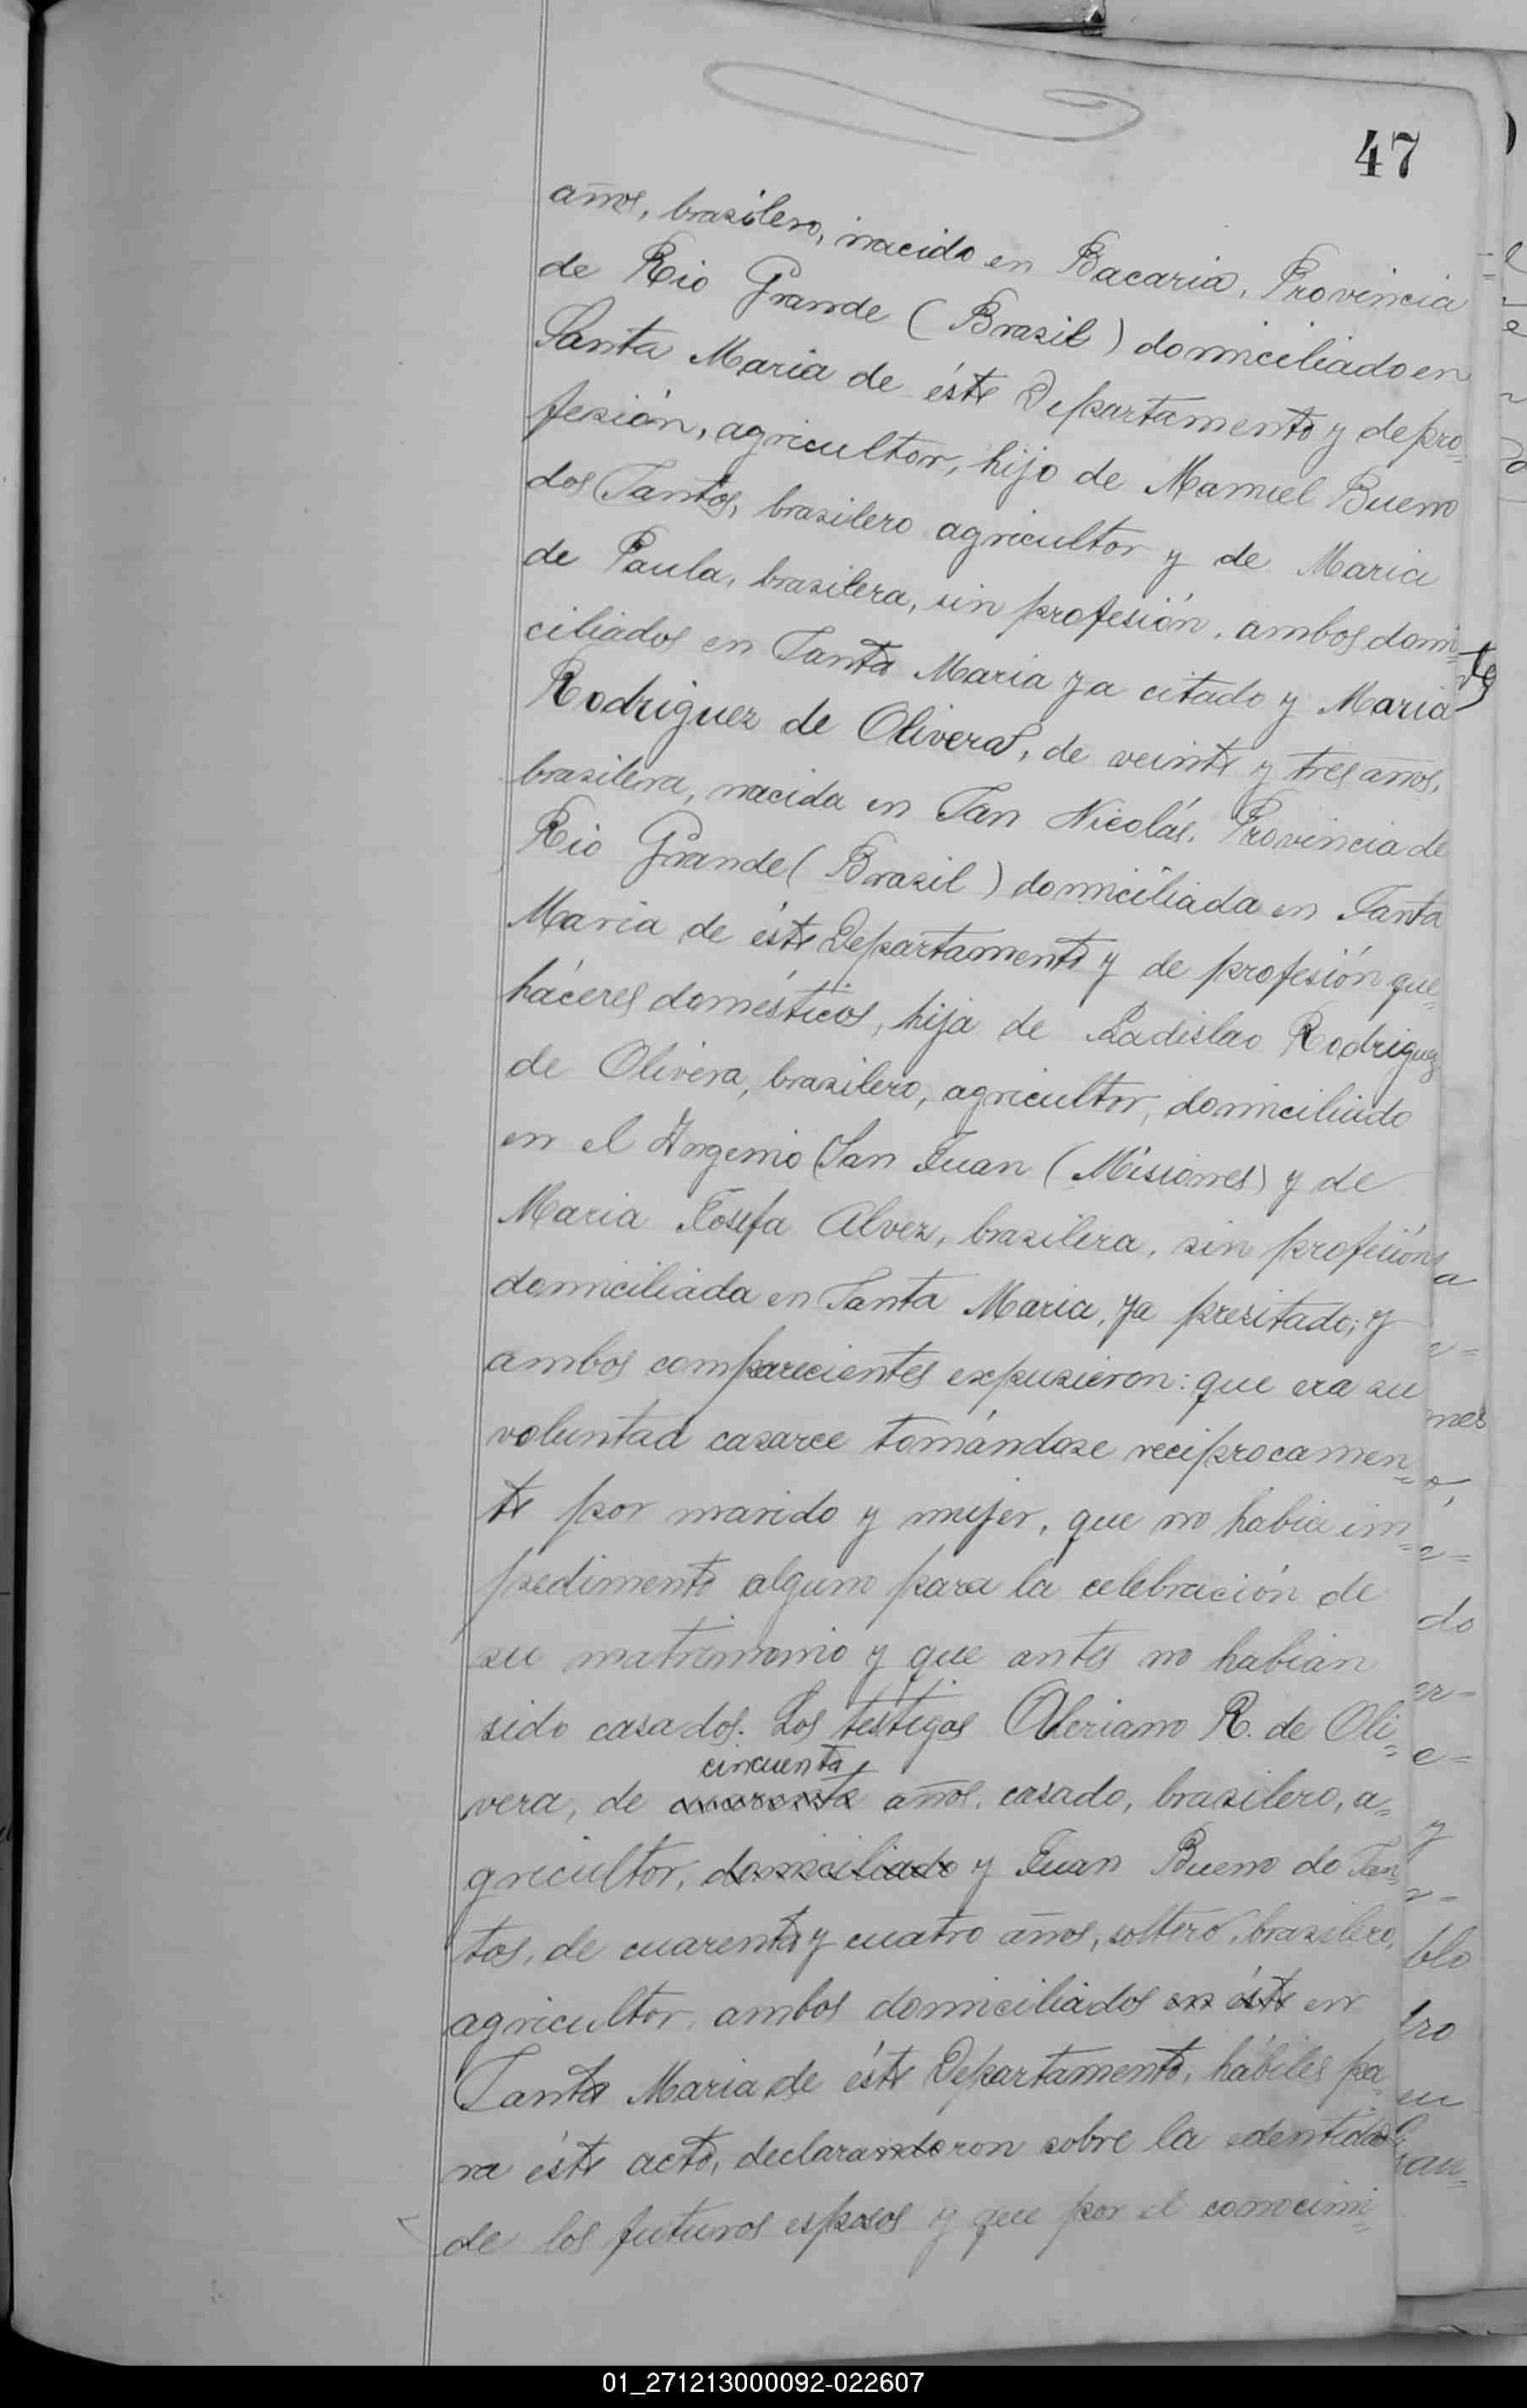 47
años, brasilero, nacido en Bacaria, Provincia
de Rio Grande (Brasil) domiciliado en
Santa Maria de éste Departamento y de pro=
fesión, agricultor, hijo de Manuel Bueno
dos Santos, brasilero agricultor y de Maria
de Paula, brasilera, sin profesión, ambos domi=
ciliados en Santa Maria ya citado y Maria
Rodriguez de Olivera, de veinte y tres años,
brasilera, nacida en San Nicolás, Provincia de
Rio Grande (Brasil) domiciliada en Santa
Maria de éste Departamento y de profesión que=
háceres domésticos, hija de Ladislao Rodriguez
de Olivera, brasilero, agricultor, domiciliado
en el Ingenio San Juan (Misiones) y de
Maria Josefa Alvez, brasilera, sin profesión,
domiciliada en Santa Maria, ya presitado; y
ambos comparecientes expusieron: que era su
voluntad casarce tomándose reciprocamen=
te por marido y mujer, que no habia im=
pedimento alguno para la celebración de
su matrimonio y que antes no habian
sido casados. Los testigos R. de Oli=
cincuenta
vera, de cuarenta años, casado, brasilero, a=
gricultor, domiciliado y Juan Bueno do San=
tos, de cuarenta y cuatro años, soltero, brasilero,
agricultor, ambos domiciliados en éste en
Santa Maria de éste Departamento, hábiles pa=
ra éste acto, declarandoron sobre la edentidad
de los futuros esposos y que por el conocimi=
01_271213000092-022607